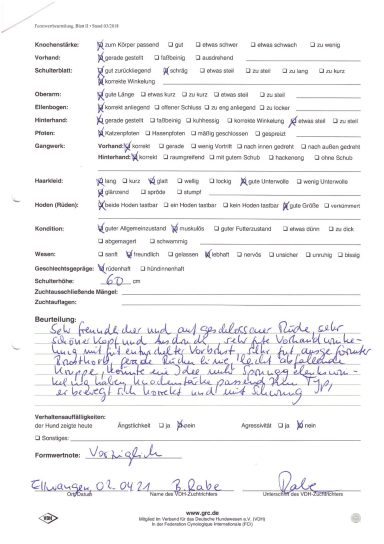 Formwertbeurteilung, Blatt II • Stand 03/2018
Knochenstärke: ☒ zum Körper passend ☐ gut ☐ etwas schwer ☐ etwas schwach ☐ zu wenig
Vorhand: ☒ gerade gestellt ☐ faßbeinig ☐ ausdrehend
Schulterblatt: ☒ gut zurückliegend ☒ schräg ☐ etwas steil ☐ zu steil ☐ zu lang ☐ zu kurz
☒ korrekte Winkelung
Oberarm: ☒ gute Länge ☐ etwas kurz ☐ zu kurz ☐ etwas steil ☐ zu steil
Ellenbogen: ☒ korrekt anliegend ☐ offener Schloss ☐ zu eng anliegend ☐ zu locker
Hinterhand: ☒ gerade gestellt ☐ faßbeinig ☐ kuhhessig ☐ korrekte Winkelung ☒ etwas steil ☐ zu steil
Pfoten: ☒ Katzenpfoten ☐ Hasenpfoten ☐ mäßig geschlossen ☐ gespreizt
Gangwerk: Vorhand: ☒ korrekt ☐ gerade ☐ wenig Vortritt ☐ nach innen gedreht ☐ nach außen gedreht
Hinterhand: ☒ korrekt ☐ raumgreifend ☐ mit gutem Schub ☐ hackeneng ☐ ohne Schub
Haarkleid: ☒ lang ☐ kurz ☒ glatt ☐ wellig ☐ lockig ☒ gute Unterwolle ☐ wenig Unterwolle
☒ glänzend ☐ spröde ☐ stumpf
Hoden (Rüden): ☒ beide Hoden tastbar ☐ ein Hoden tastbar ☐ kein Hoden tastbar ☒ gute Größe ☐ verkümmert
Kondition: ☒ guter Allgemeinzustand ☒ muskulös ☐ guter Futterzustand ☐ etwas dünn ☐ zu dick
☐ abgemagert ☐ schwammig
Wesen: ☐ sanft ☒ freundlich ☐ gelassen ☒ lebhaft ☐ nervös ☐ unsicher ☐ unruhig ☐ bissig
Geschlechtsgepräge: ☒ rüdenhaft ☐ hündinnenhaft
Schulterhöhe: 60 cm
Zuchtausschließende Mängel:
Zuchtauflagen:
Beurteilung:
Sehr freundlicher und aufgeschlossener Rüde, sehr
schöner Kopf und Ausdruck, sehr gute Vorhandwinke-
lung mit gut entwickelter Vorbrust, sehr gut ausgeformter
Brustkorb, gerade Rückenlinie, leicht abfallende
Kruppe, könnte eine Idee mehr Sprunggelenkswin-
kelung haben, Knochenstärke passend zum Typ,
er bewegt sich korrekt und mit Schwung
Verhaltensauffälligkeiten:
der Hund zeigte heute Ängstlichkeit ☐ ja ☒ nein Aggressivität ☐ ja ☒ nein
☐ Sonstiges:
Formwertnote: Vorzüglich
Ellwangen 02.04.21 B. Rabe Rabe
Ort/Datum Name des VDH-Zuchtrichters Unterschrift des VDH-Zuchtrichters
VDH
www.grc.de
Mitglied im Verband für das Deutsche Hundewesen e.V. (VDH)
In der Federation Cynologique Internationale (FCI)